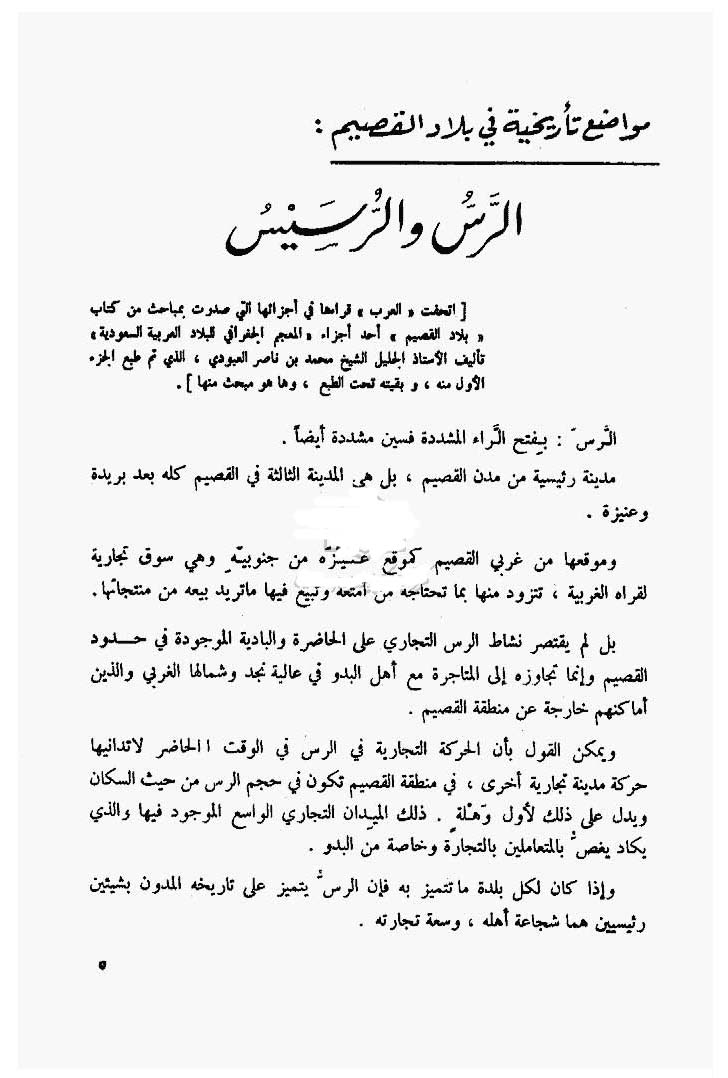 مواضع تأريخية في بلاد القصيم :
الرَّسُّ والرُّسَيْسُ
[ اتحفت « العرب » قراءها في أجزائها التي صدرت بمباحث من كتاب
« بلاد القصيم » أحد أجزاء « المعجم الجغرافي للبلاد العربية السعودية »
تأليف الأستاذ الجليل الشيخ محمد بن ناصر العبودي ، الذي تم طبع الجزء
الأول منه ، و بقيته تحت الطبع ، وها هو مبحث منها ] .
الرَّسّ : بفتح الرَّاء المشددة فسين مشددة أيضاً .
مدينة رئيسية من مدن القصيم ، بل هى المدينة الثالثة في القصيم كله بعد بريدة
وعنيزة .
وموقعها من غربي القصيم كموقع عنيزة من جنوبيه وهي سوق تجارية
لقراه الغربية ، تتزود منها بما تحتاجه من امتعه وتبيع فيها ماتريد بيعه من منتجاتها .
بل لم يقتصر نشاط الرس التجاري على الحاضرة والبادية الموجودة في حدود
القصيم وإنما تجاوزه إلى المتاجرة مع أهل البدو في عالية نجد وشمالها الغربي والذين
أماكنهم خارجة عن منطقة القصيم .
ويمكن القول بأن الحركة التجارية في الرس في الوقت االحاضر لاتدانيها
حركة مدينة تجارية أخرى ، في منطقة القصيم تكون في حجم الرس من حيث السكان
ويدل على ذلك لأول وَهْلةٍ . ذلك الميدان التجاري الواسع الموجود فيها والذي
يكاد يغصُّ بالمتعاملين بالتجارة وخاصة من البدو .
وإذا كان لكل بلدة ماتتميز به فإن الرسُّ يتميز على تاريخه المدون بشيئين
رئيسيين هما شجاعة أهله ، وسعة تجارته .
٥